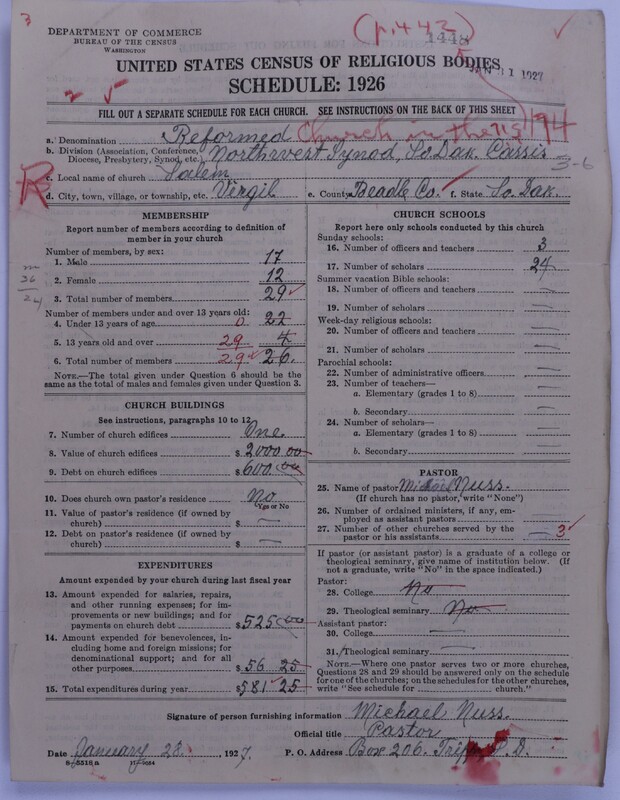 3
(p. 442)
1448
DEPARTMENT OF COMMERCE
BUREAU OF THE CENSUS
WASHINGTON
UNITED STATES CENSUS OF RELIGIOUS BODIES
JAN 31 1927
SCHEDULE: 1926
2
FILL OUT A SEPARATE SCHEDULE FOR EACH CHURCH. SEE INSTRUCTIONS ON THE BACK OF THIS SHEET
a. Denomination Reformed Church in the U.S. 194
b. Division (Association, Conference, Diocese, Presbytery, Synod, etc.) Northwest Synod, So. Dak. Cassis
3-6
c. Local name of church Salem
R
d. City, town, village, or township, etc. Virgil e. County Beadle Co. f. State So. Dak.
MEMBERSHIP
Report number of members according to definition of
member in your church
Number of members, by sex:
1. Male 17
2. Female 12
3. Total number of members 29
36
Number of members under and over 13 years old:
4. Under 13 years of age 0 22
5. 13 years old and over 29 4
6. Total number of members 29 26
NOTE.—The total given under Question 6 should be the
same as the total of males and females given under Question 3.
CHURCH BUILDINGS
See instructions, paragraphs 10 to 12
7. Number of church edifices One
8. Value of church edifices $ 2000.00
9. Debt on church edifices $ 600.00
10. Does church own pastor's residence No
Yes or No
11. Value of pastor's residence (if owned by
church) $ —
12. Debt on pastor's residence (if owned by
church) $ —
EXPENDITURES
Amount expended by your church during last fiscal year
13. Amount expended for salaries, repairs,
and other running expenses; for im-
provements or new buildings; and for
payments on church debt $ 525.00
14. Amount expended for benevolences, in-
cluding home and foreign missions; for
denominational support; and for all
other purposes $ 56 25
15. Total expenditures during year $ 581 25
CHURCH SCHOOLS
Report here only schools conducted by this church
Sunday schools:
16. Number of officers and teachers 3
17. Number of scholars 24
Summer vacation Bible schools:
18. Number of officers and teachers —
19. Number of scholars —
Week-day religious schools:
20. Number of officers and teachers —
21. Number of scholars —
Parochial schools:
22. Number of administrative officers —
23. Number of teachers—
a. Elementary (grades 1 to 8) —
b. Secondary —
24. Number of scholars—
a. Elementary (grades 1 to 8) —
b. Secondary —
PASTOR
25. Name of pastor Michael Nuss.
(If church has no pastor, write "None")
26. Number of ordained ministers, if any, em-
ployed as assistant pastors —
27. Number of other churches served by the
pastor or his assistants — 3
If pastor (or assistant pastor) is a graduate of a college or
theological seminary, give name of institution below. (If
not a graduate, write "No" in the space indicated.)
Pastor:
28. College No
29. Theological seminary No
Assistant pastor:
30. College —
31. Theological seminary —
NOTE.—Where one pastor serves two or more churches,
Questions 28 and 29 should be answered only on the schedule
for one of the churches; on the schedules for the other churches,
write "See schedule for church."
Signature of person furnishing information Michael Nuss.
Official title Pastor
Date January 28, 1927. P. O. Address Box 206. Tripp S. D.